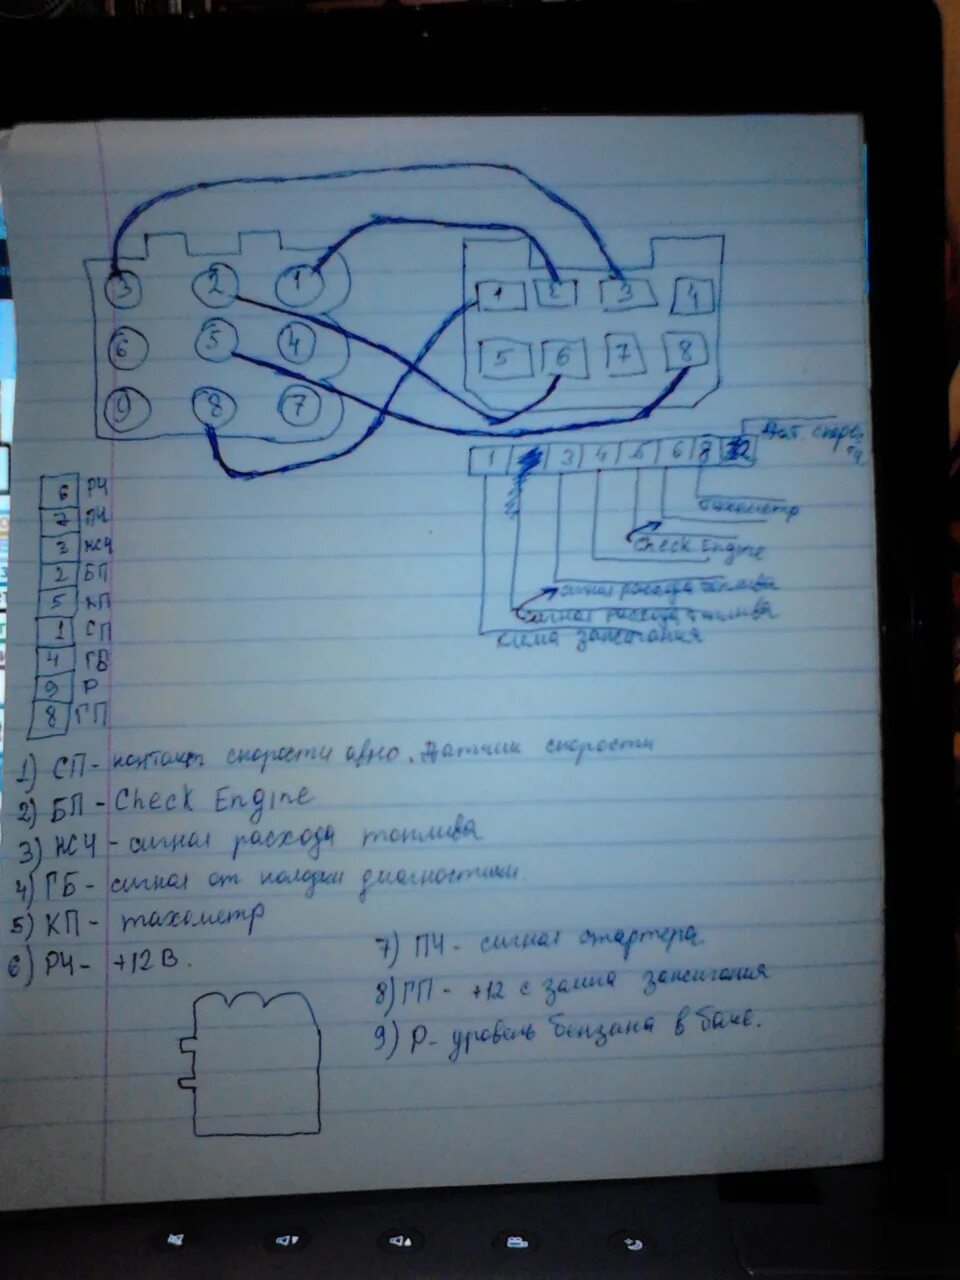 3 2 1
6 5 4
9 8 7
1 2 3 4
5 6 7 8
1 3 4 5 6 8
Дат. скорости
тахометр
Check Engine
сигнал расхода топлива
сигнал расхода топлива
клема зажигания
6 РЧ
7 ПЧ
3 НСЧ
2 БП
5 КП
1 СП
4 ГБ
9 Р
8 ГП
1) СП - контакт скорости авто. Датчик скорости
2) БП - Check Engine
3) НСЧ - сигнал расхода топлива
4) ГБ - сигнал от колодки диагностики
5) КП - тахометр
6) РЧ - +12 В.
7) ПЧ - сигнал стартера
8) ГП - +12 с замка зажигания
9) Р - уровень бензина в баке.